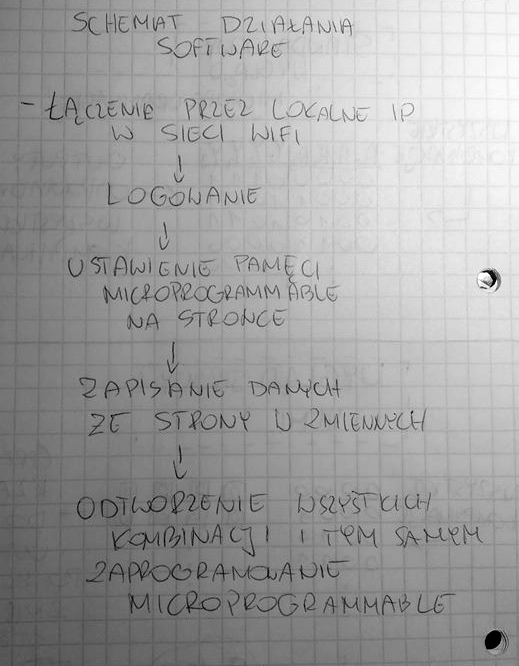 SCHEMAT DZIAŁANIA
SOFTWARE
- ŁĄCZENIE PRZEZ LOKALNE IP
W SIECI WIFI
↓
LOGOWANIE
↓
USTAWIENIE PAMĘCI
MICROPROGRAMMABLE
NA STRONCE
↓
ZAPISANIE DANYCH
ZE STRONY W ZMIENNYCH
↓
ODTWORZENIE WSZYSTKICH
KOMBINACJI I TYM SAMYM
ZAPROGRAMOWANIE
MICROPROGRAMMABLE